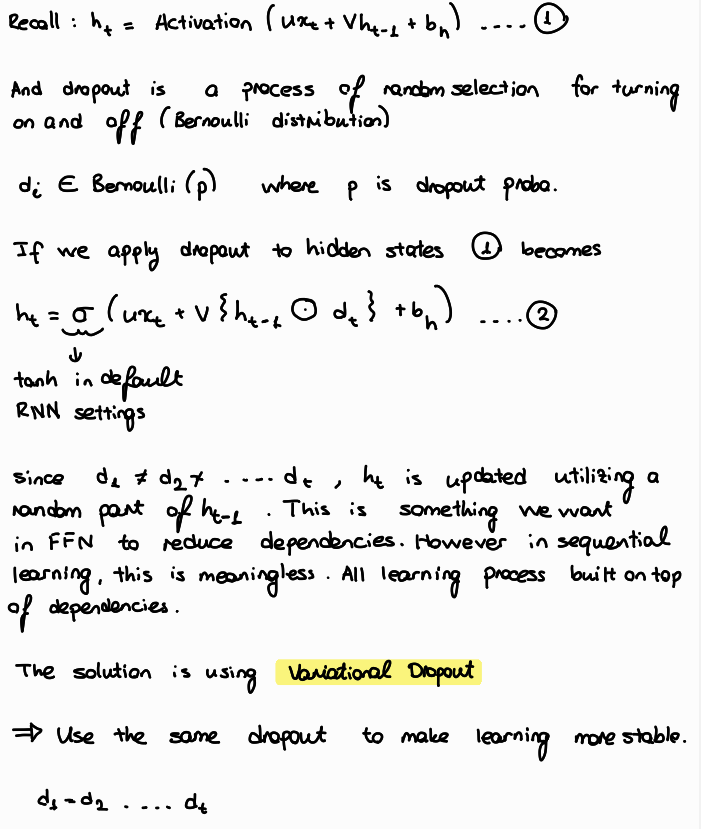 Recall : h_t = Activation (ux_t + Vh_{t-1} + b_h) .... ①
And dropout is a process of random selection for turning
on and off (Bernoulli distribution)
d_i ∈ Bernoulli (p) where p is dropout proba.
If we apply dropout to hidden states ① becomes
h_t = σ (ux_t + V {h_{t-1} ⊙ d_t} + b_h) .... ②
↓
tanh in default
RNN settings
since d_1 ≠ d_2 ≠ .... d_t , h_t is updated utilizing a
random part of h_{t-1} . This is something we want
in FFN to reduce dependencies. However in sequential
learning, this is meaningless. All learning process built on top
of dependencies.
The solution is using Variational Dropout
⇒ Use the same dropout to make learning more stable.
d_1 = d_2 .... d_t